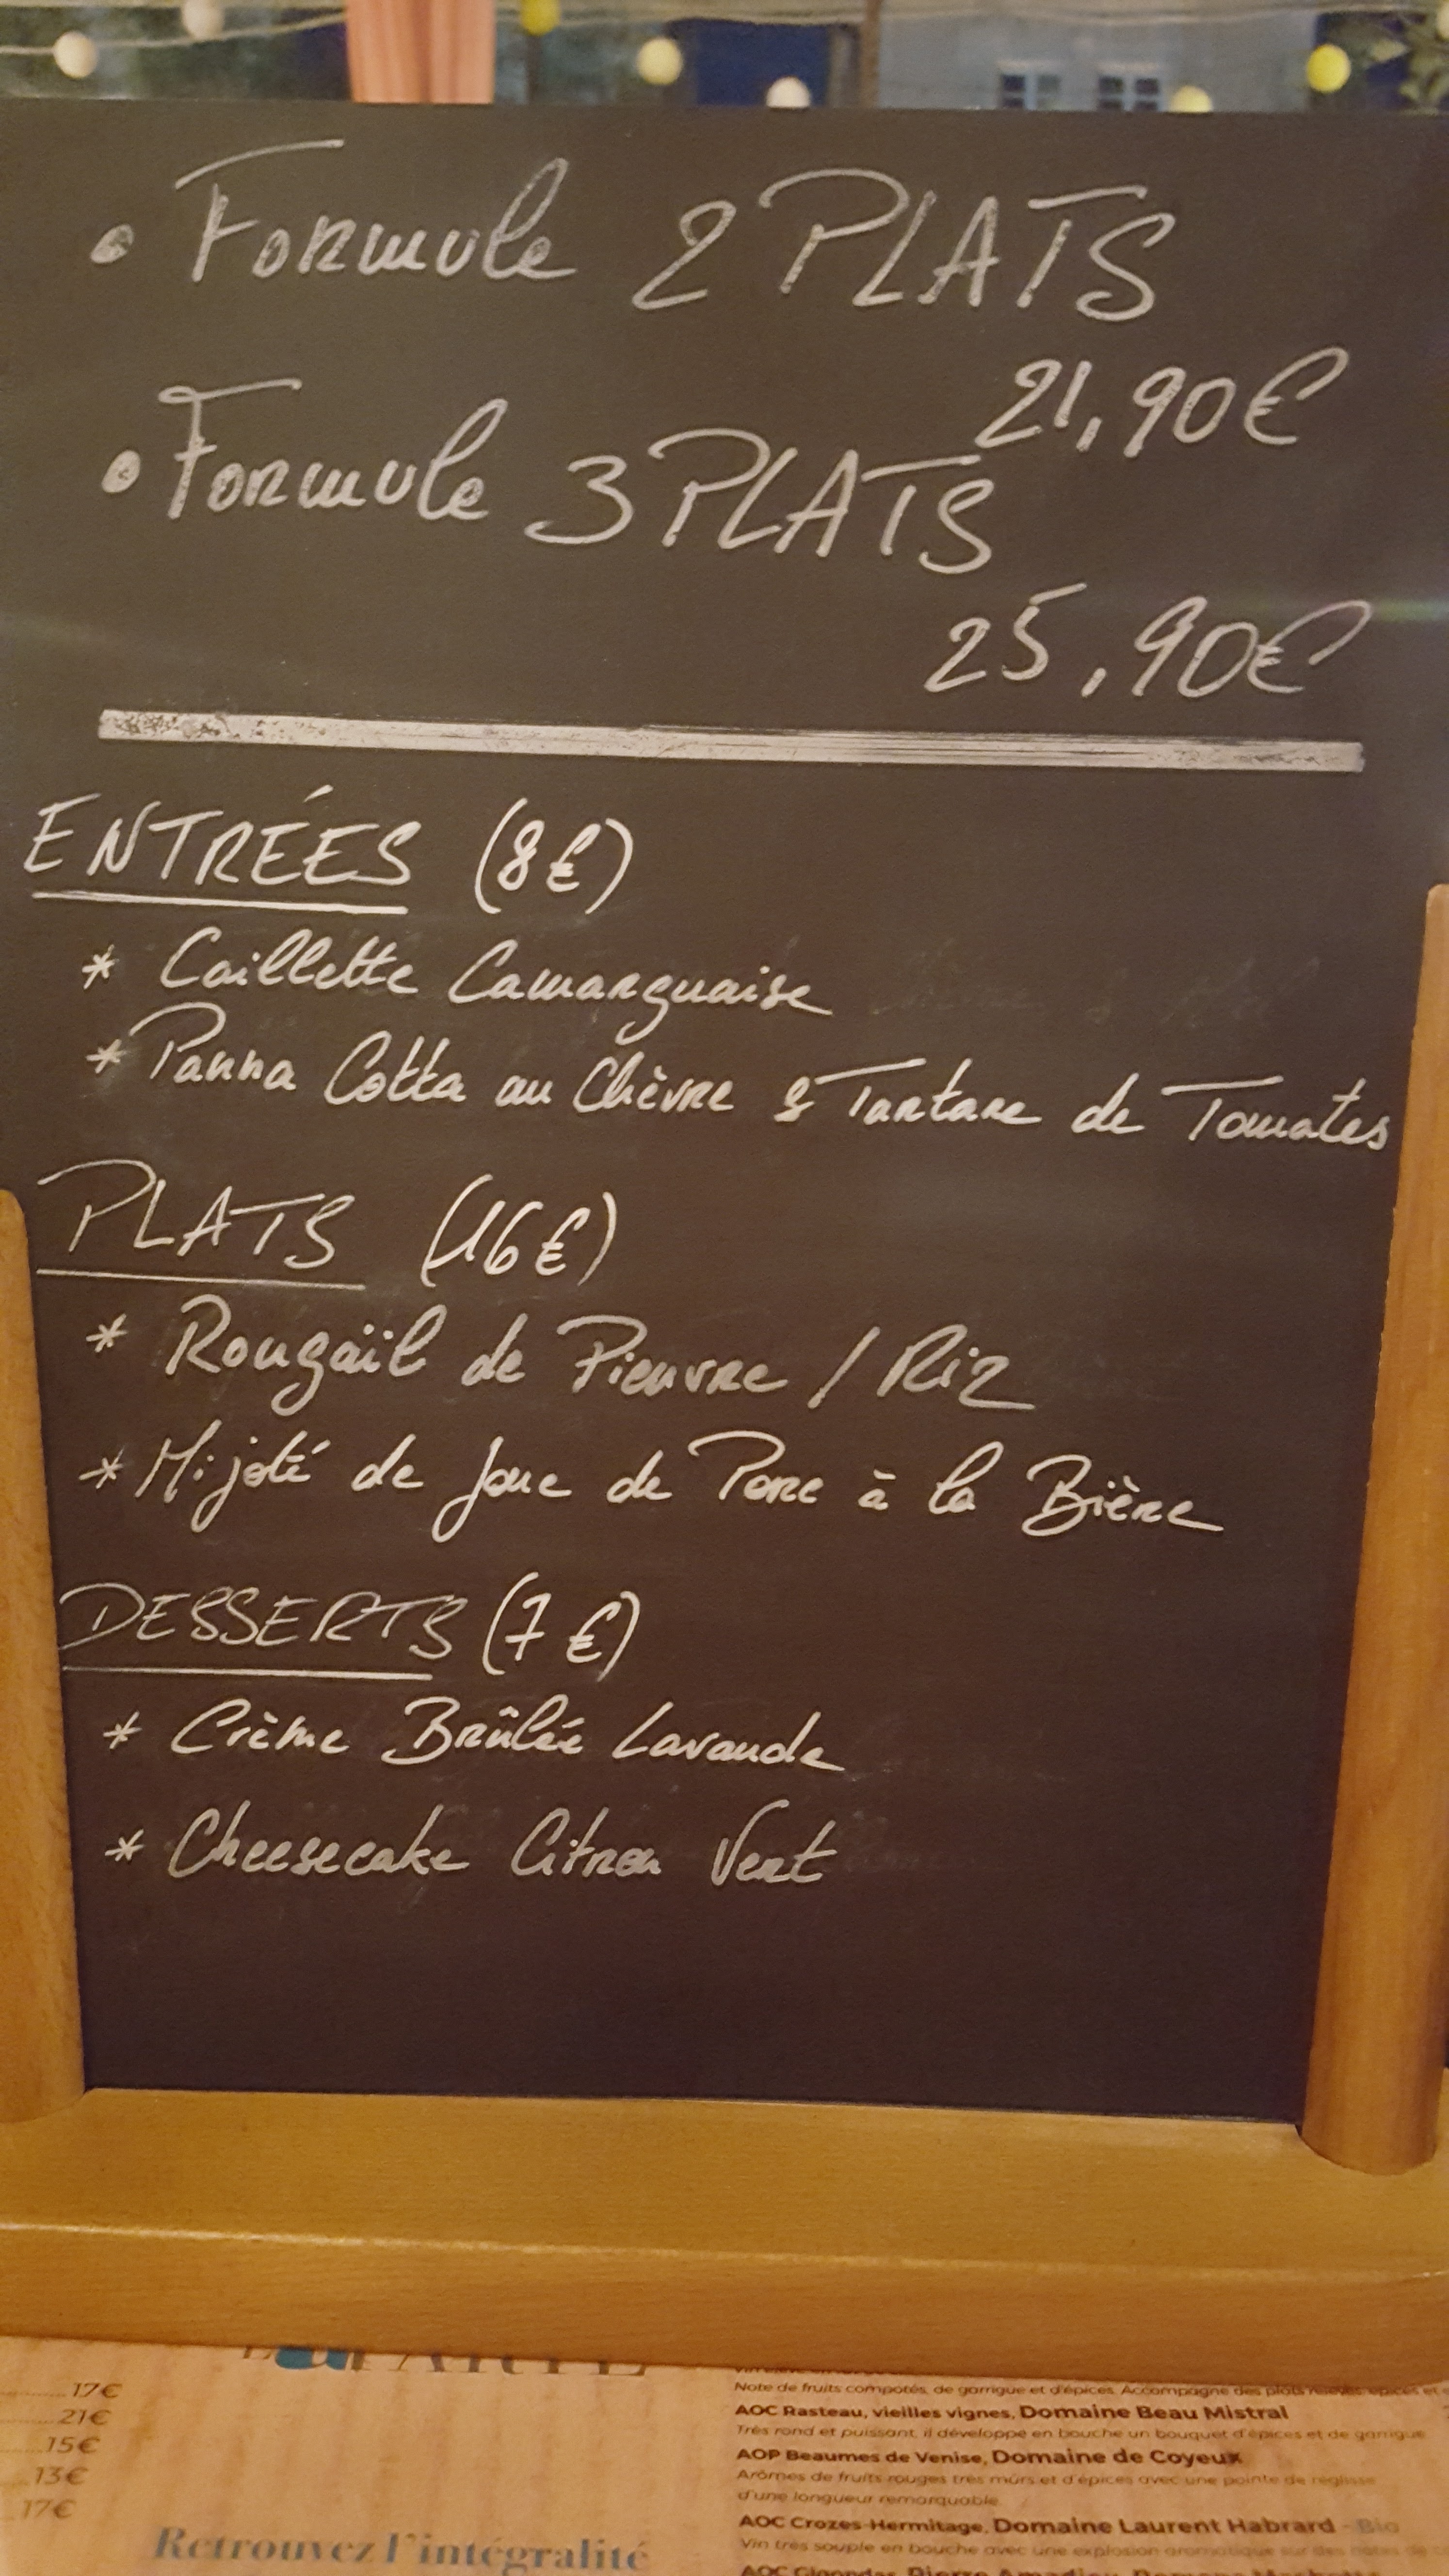 • Formule 2 PLATS
21,90€
• Formule 3 PLATS
25,90€
ENTRÉES (8€)
* Caillette Camarguaise
* Panna Cotta au Chèvre & Tartare de Tomates
PLATS (16€)
* Rougaïl de Pieuvre / Riz
* Mijoté de Joue de Porc à la Bière
DESSERTS (7€)
* Crème Brûlée Lavande
* Cheesecake Citron Vert
17€
21€
15€
13€
17€
Retrouvez l'intégralité
Note de fruits compotés, de garrigue et d'épices. Accompagne des plots relevés,
AOC Rasteau, vieilles vignes, Domaine Beau Mistral
Très rond et puissant, il développe en bouche un bouquet d'épices et de garrigue
AOP Beaumes de Venise, Domaine de Coyeux
Arômes de fruits rouges très mûrs et d'épices avec une pointe de réglisse
d'une longueur remarquable
AOC Crozes-Hermitage, Domaine Laurent Habrard - Bio
Vin très souple en bouche avec une explosion aromatique sur des notes de